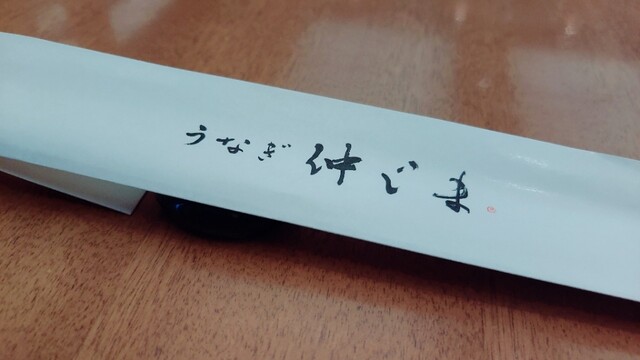 うなぎ 仲ごま